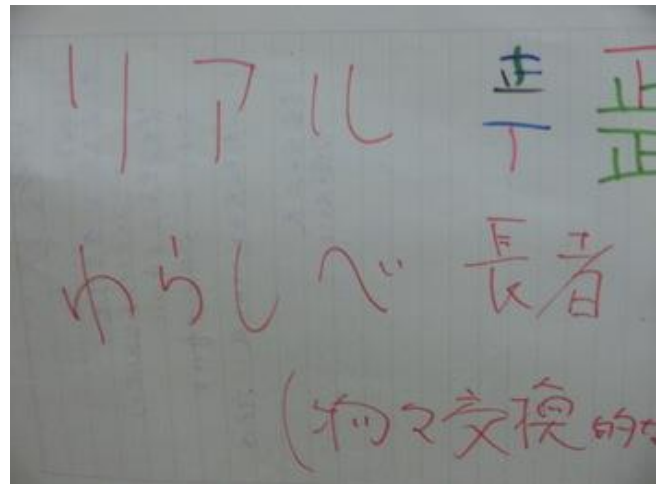 リアル 正 正
丅 正
わらしべ長者
(物々交換的な